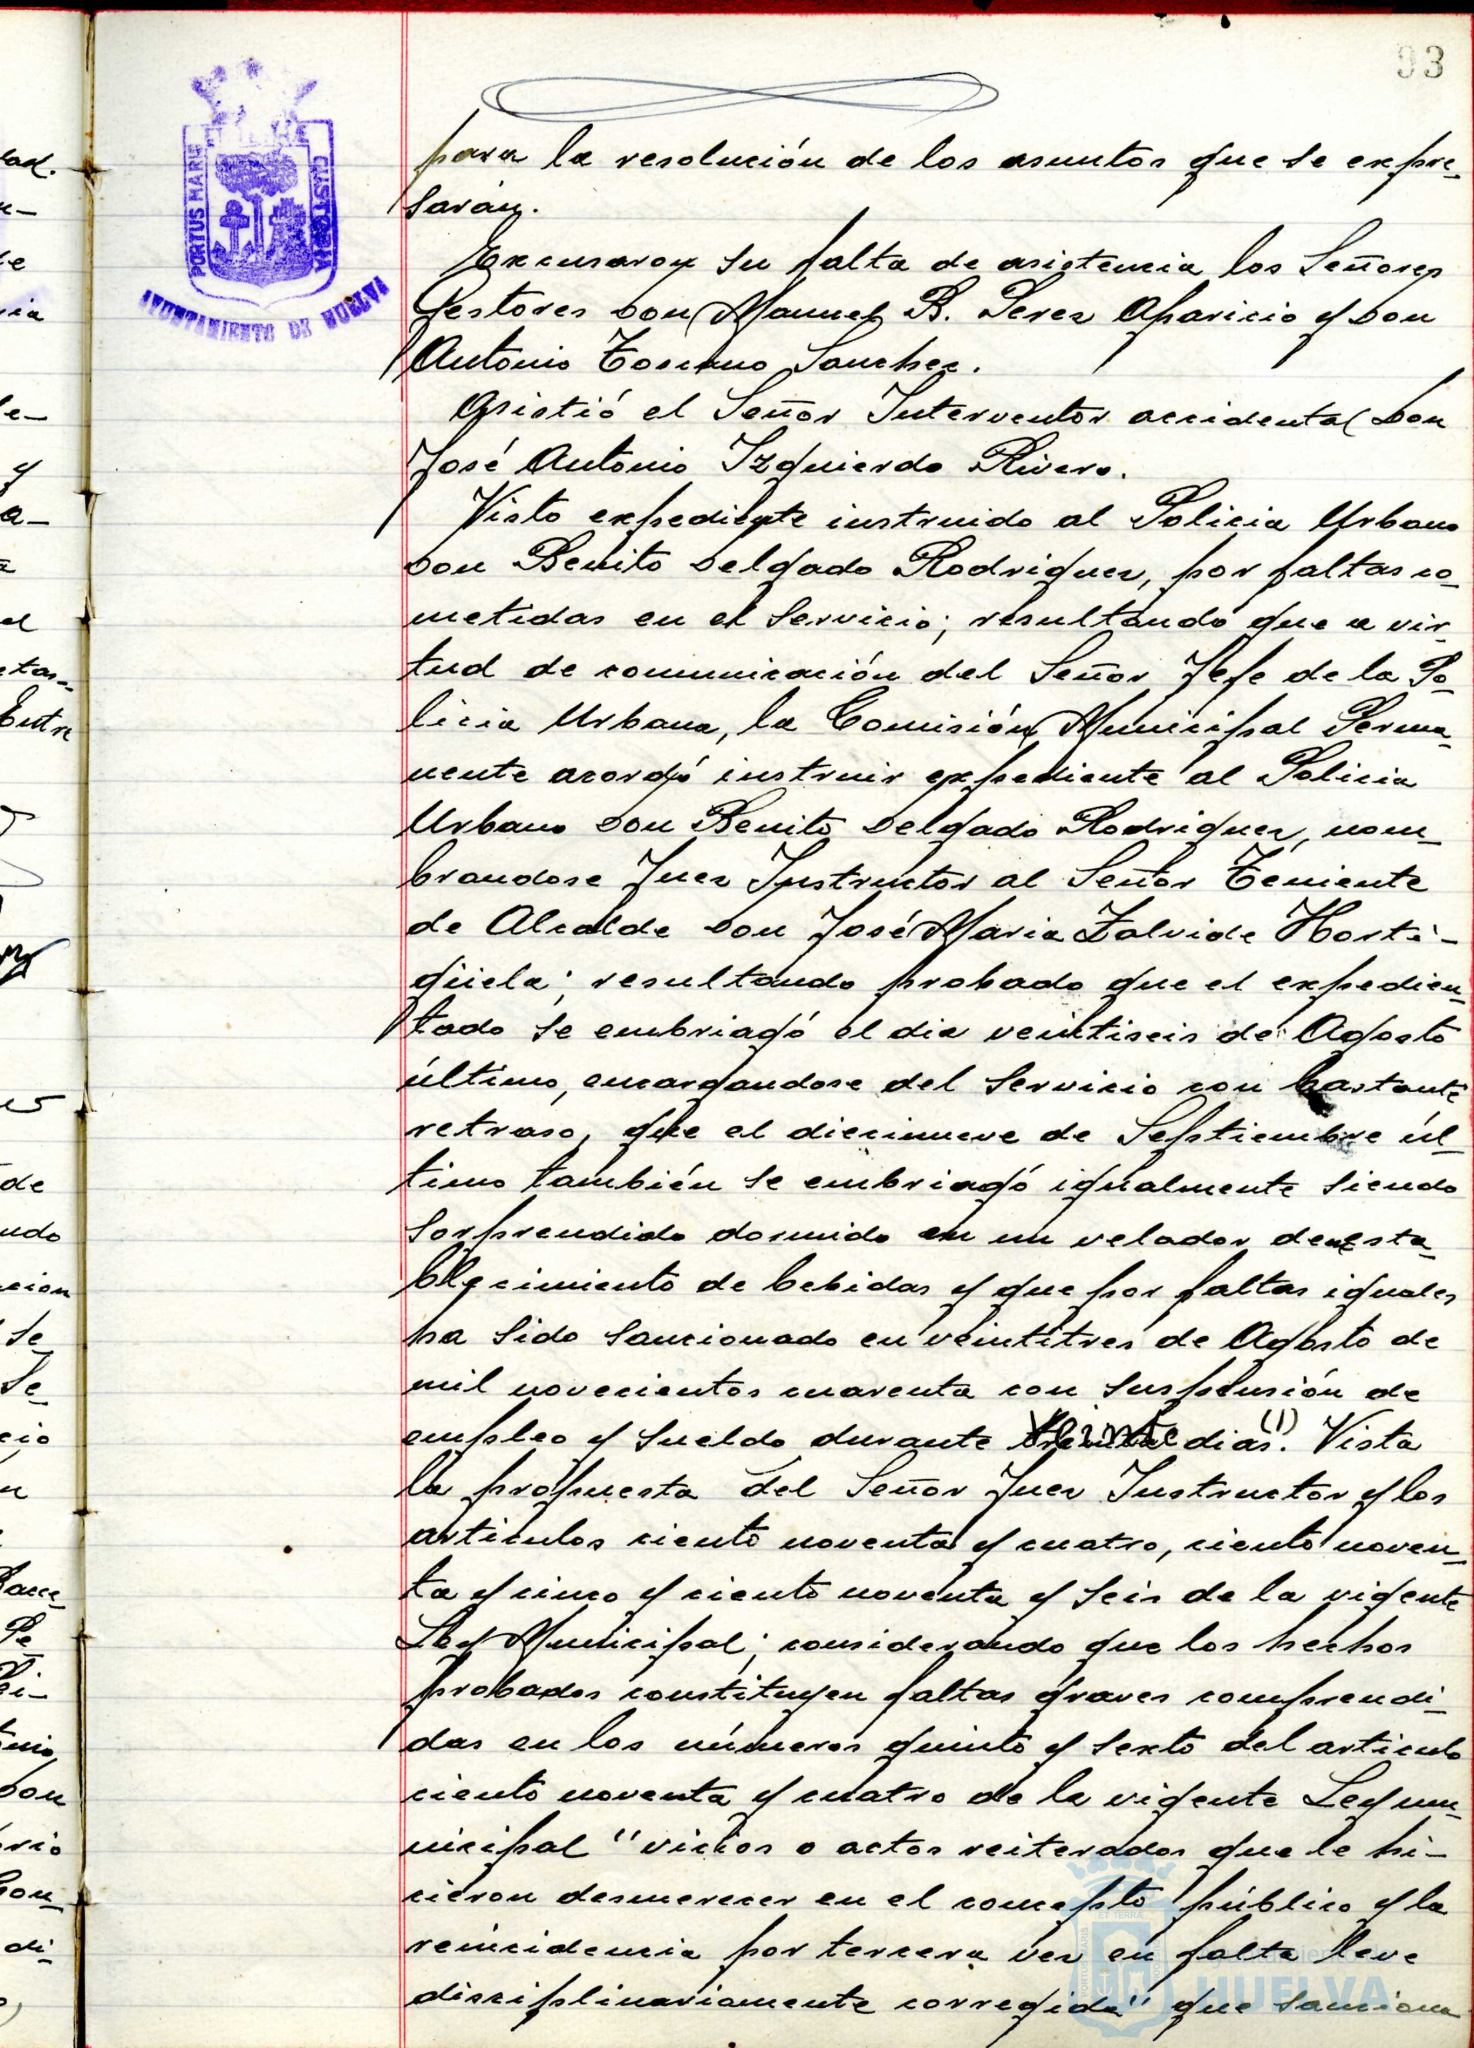 93
para la resolución de los asuntos que se expre-
sarán.
Excusaron su falta de asistencia los Señores
Gestores Don Manuel B. Perez Aparicio y Don
Antonio Toscano Sanchez.
Asistió el Señor Interventor accidental Don
José Antonio Izquierdo Rivero.
Visto expediente instruido al Policia Urbano
Don Benito Delgado Rodriguez, por faltas co-
metidas en el servicio; resultando que a vir-
tud de comunicación del Señor Jefe de la Po-
licia Urbana, la Comisión Municipal Perma-
nente acordó instruir expediente al Policia
Urbano Don Benito Delgado Rodriguez, nom-
brandose Juez Instructor al Señor Teniente
de Alcalde Don José Maria Zalvide Horti-
güela; resultando probado que el expedien-
tado se embriagó el dia veintiseis de Agosto
último, encargandose del servicio con bastante
retraso, que el diecinueve de Septiembre úl-
timo también se embriagó igualmente siendo
sorprendido dormido en un velador de esta-
blecimiento de bebidas y que por faltas iguales
ha sido sancionado en veintitres de Agosto de
mil novecientos cuarenta con suspensión de
empleo y sueldo durante veinte dias(1). Vista
la propuesta del Señor Juez Instructor y los
articulos ciento noventa y cuatro, ciento noven-
ta y cinco y ciento noventa y seis de la vigente
Ley Municipal; considerando que los hechos
probados constituyen faltas graves comprendi-
das en los números quinto y sexto del articulo
ciento noventa y cuatro de la vigente Ley mu-
nicipal "vicios o actos reiterados que le hi-
cieron desmerecer en el concepto público y la
reincidencia por tercera vez en falta leve
disciplinariamente corregida" que sanciona
PORTUS MARIS ET TERRE CUSTODIA
AYUNTAMIENTO DE HUELVA
HUELVA